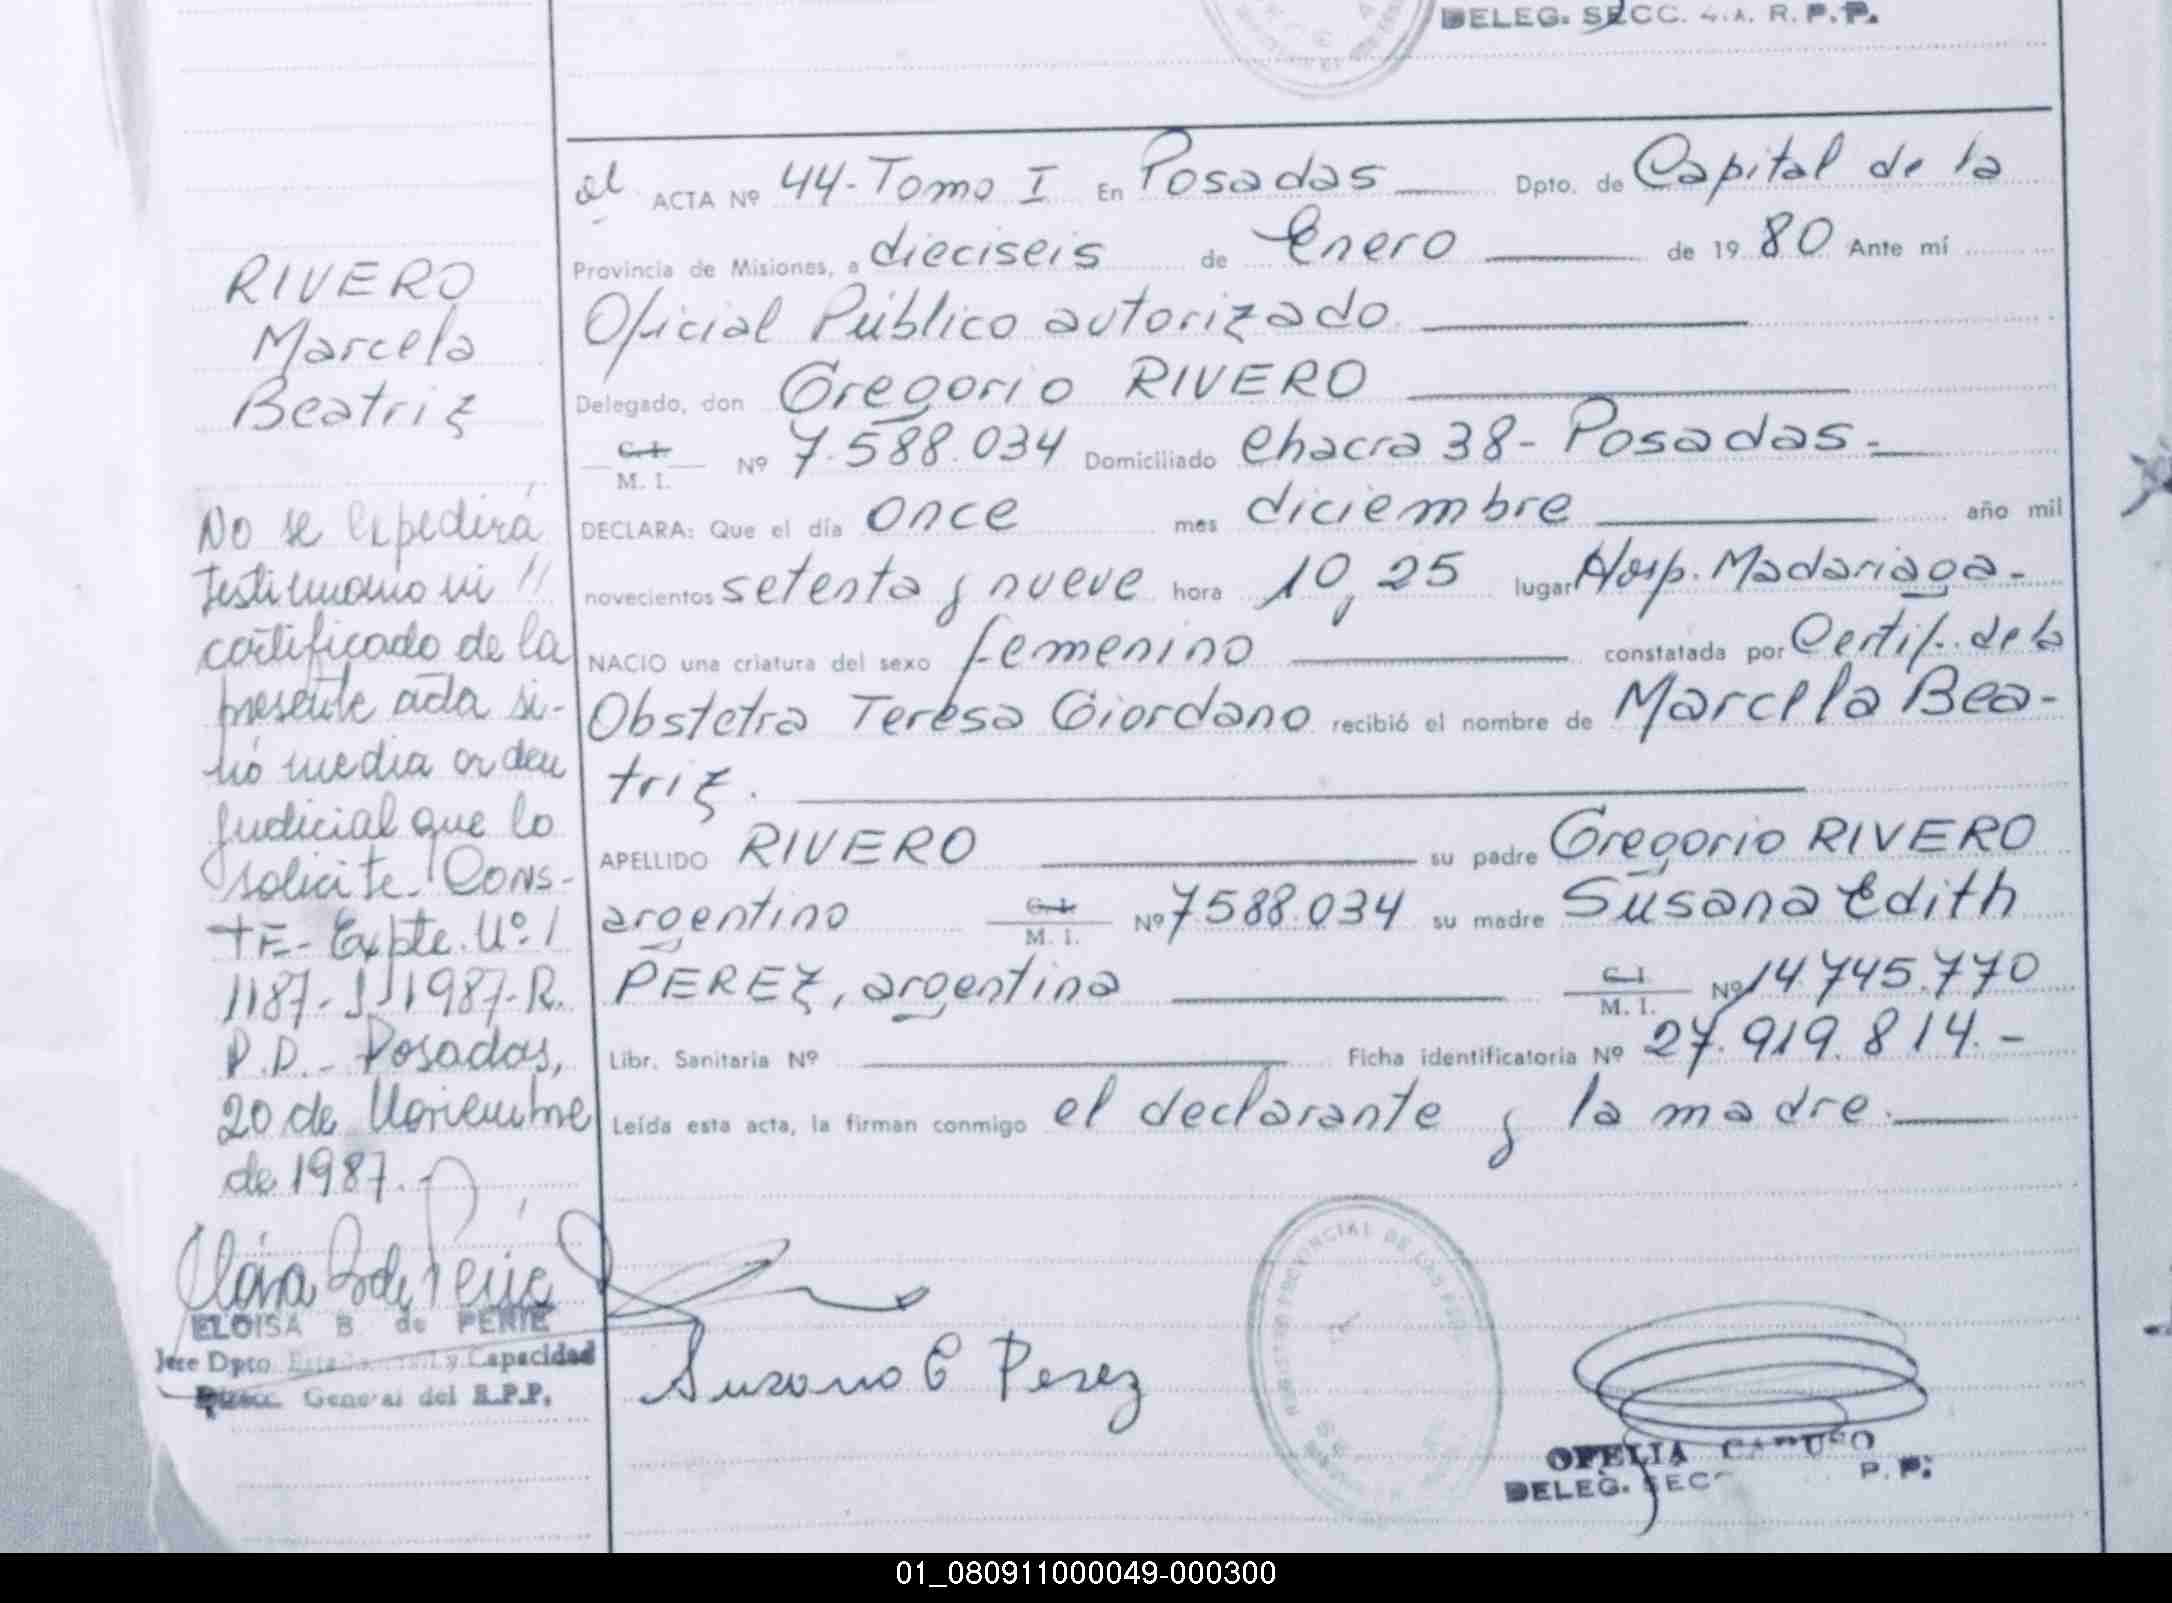 DELEG. SECC. 4.A. R.P.P.
al ACTA Nº 44-Tomo I En Posadas Dpto. de Capital de la
Provincia de Misiones, a dieciseis de Enero de 19 80 Ante mí
Oficial Público autorizado
Delegado, don Gregorio RIVERO
C.I. M. I. Nº 7.588.034 Domiciliado Chacra 38- Posadas-
DECLARA: Que el día once mes diciembre año mil
novecientos setenta y nueve hora 10,25 lugar Hosp. Madariaga-
NACIO una criatura del sexo femenino constatada por Certif. de la
Obstetra Teresa Giordano recibió el nombre de Marcela Bea-
triz.
APELLIDO RIVERO su padre Gregorio RIVERO
argentino C.I. M. I. Nº 7588.034 su madre Susana Edith
PEREZ, argentina C.I. M. I. Nº 14.745.770
Libr. Sanitaria Nº Ficha identificatoria Nº 27.919.814.-
Leída esta acta, la firman conmigo el declarante y la madre.
RIVERO
Marcela
Beatriz
No se expedirá
testimonio ni
certificado de la
presente acta si-
nó media orden
judicial que lo
solicite. Cons-
TE- Expte. Nº
1187- 1987-R.
P.P.- Posadas,
20 de Noviembre
de 1987.-
ELOISA B de PERIE
Jefe Dpto Estado Civil y Capacidad
Direcc. General del R.P.P.
Susana E Perez
REGISTRO PROVINCIAL DE LAS
OFELIA CARUSO
DELEG. SECC P. P.
01_080911000049-000300